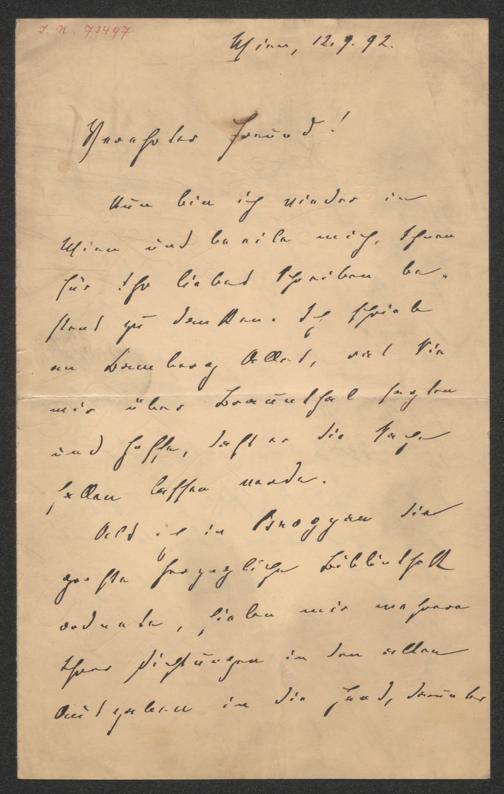 I. N. 73497
Wien, 12.9.92.
Verehrter Freund!
Nun bin ich wieder in
Wien und beeile mich, Ihnen
für Ihr liebes Schreiben be-
stens zu danken. Ich schrieb
an Bamberg Alles, was Sie
mir über Braunthal sagten
und hoffe, daß er die Sache
fallen lassen werde.
Als ich in die
große herzogliche Bibliothek
ordnete, fielen mir mehrere
Ihrer Dichtungen in den alten
Ausgaben in die Hand, darunter